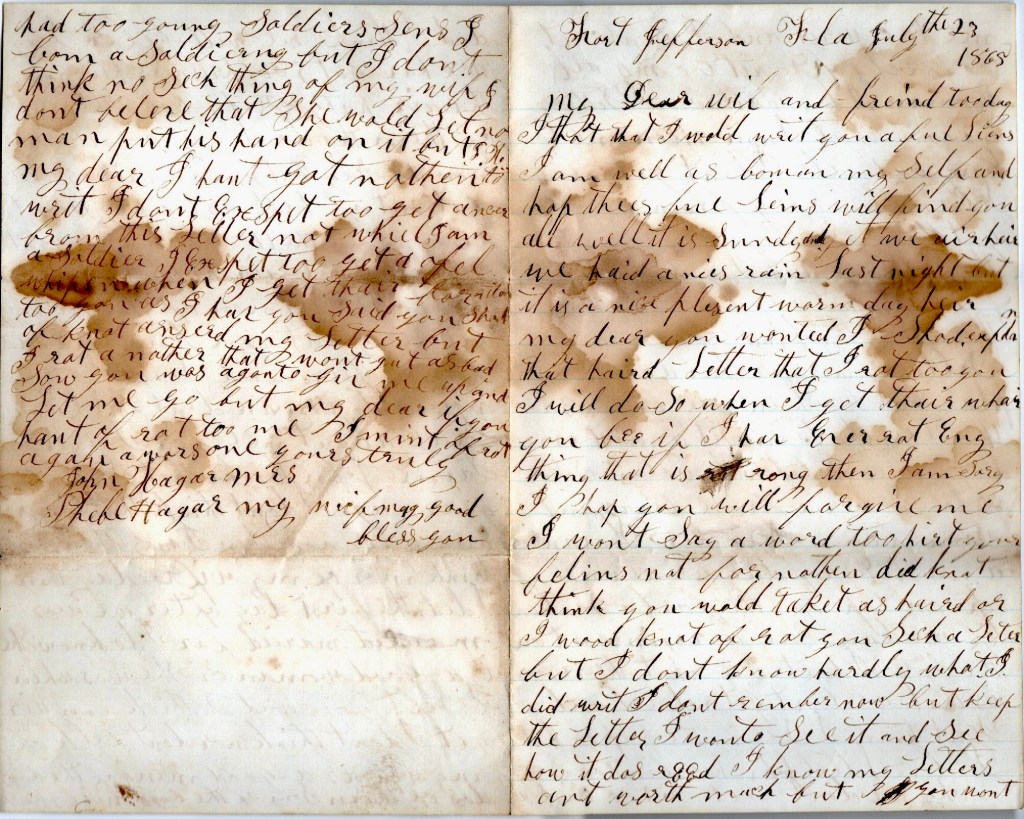 Fort Jefferson Fla July the 23
1865
my Dear wif and freind to day
I that that I wold writ you a ful Lins
I am well as comman my Self and
hop thees ful Leins will find you
all well it is Sunday and we air hair
we haid a nies rain Last night but
it is a nice plesent warm day heir
my dear you wonted I Shod explan
that haird Letter that I rot too you
I will do So when I get thair whair
you bee if I har Ever rot Eny
thing that is rong then I am Sory
I hop you will forgive me
I wont Say a word too hirt your
felins not for nothen did knot
think you wold taket as haird or
I wood knot of rot you Sech a Leter
but I dont know hardly what I
did writ I dont rember now but keep
the Letter I wonto See it and See
how it dos reed I know my Letters
ant worth much but if you wont
had too young Soldiers Sens I
bom a Soldierng but I dont
think no Sech thing of my wif I
dont beleve that She wold Let no
man put his hand on it but
my dear I hant got nothen to
writ I dont Exespet too get a ancer
from this Letter not while I am
a Soldier I Exspet too get a ofel
whipen when I get thair
too you as I har you Said you Shod
of knot anserd my Letter but
I rot a nother that wont qut as bad
Now you was agonto giv me up and
Let me go but my dear if you
hant of rot too me I mint of rot
again a wors one yours truly
John Hagar mrs
Phebe Hagar my wief may good
bless you